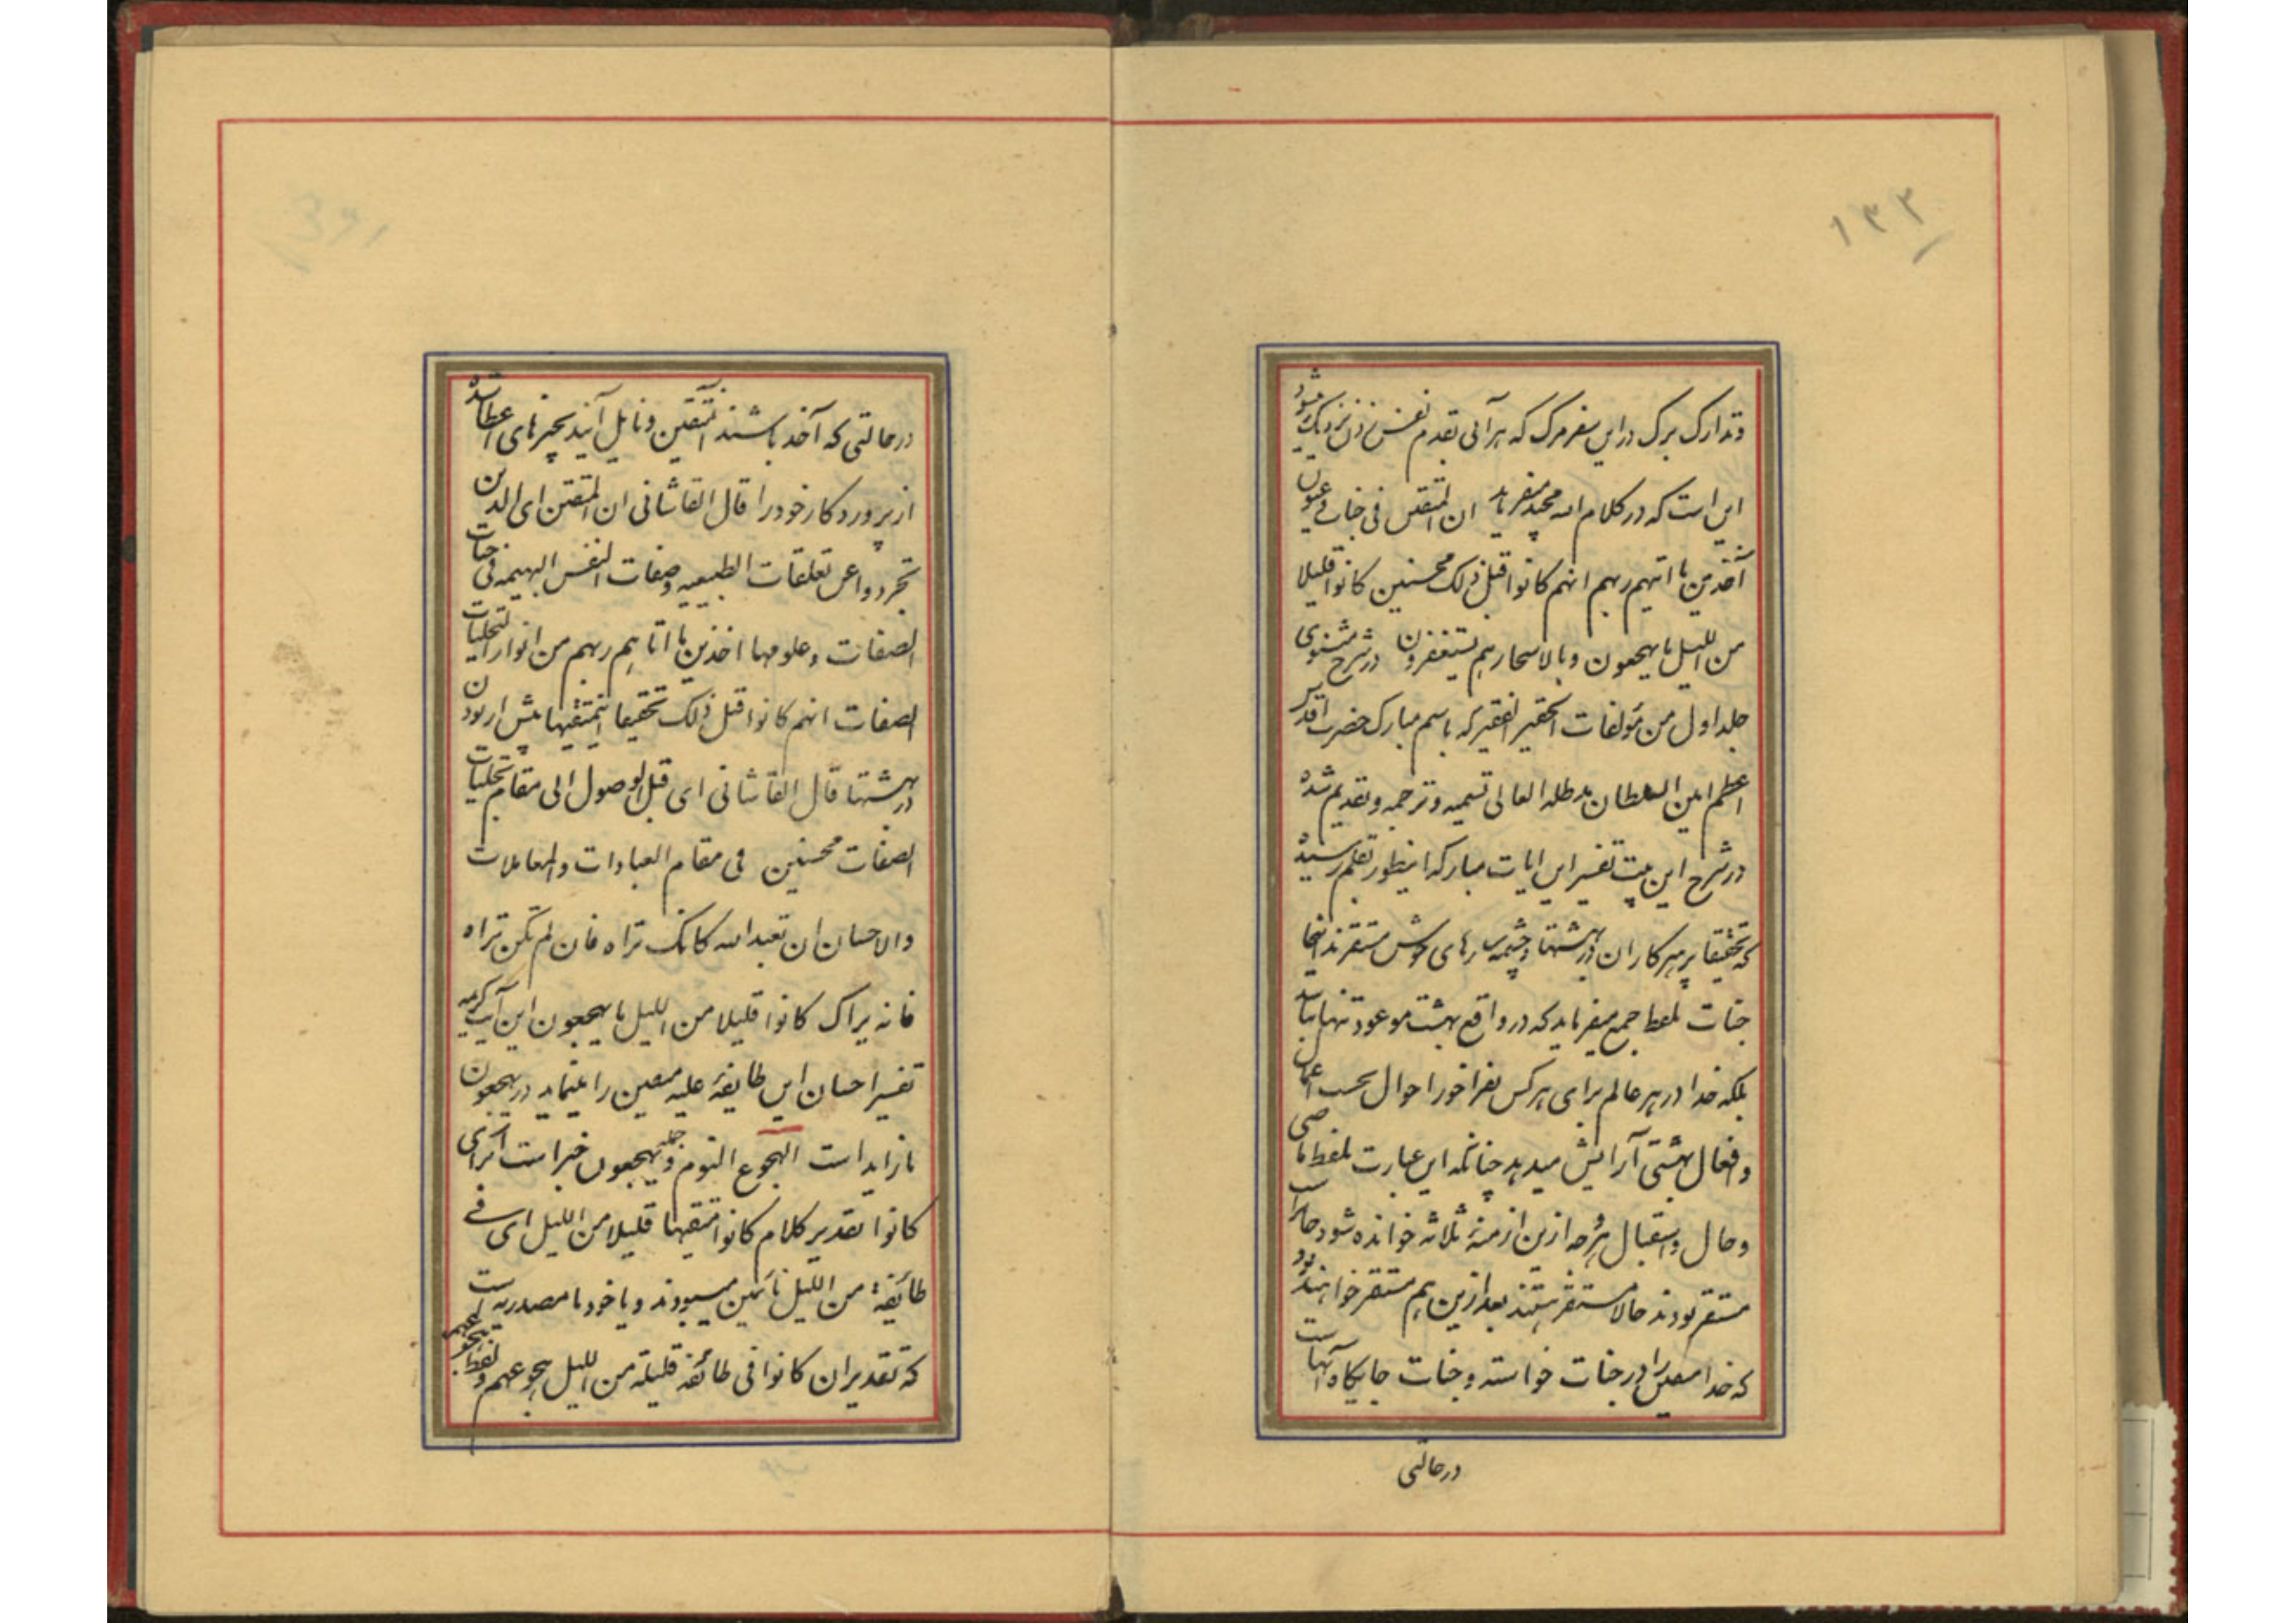 ۱۳۳
وتدارک برک در این سفر مرک که هر آنی بقدم نفس زدن نزدیک میشود
این است که در کلام الله مجید میفرماید ان المتقین فی جنات وعیون
آخذین ما اتیهم ربهم انهم کانوا قبل ذلک محسنین کانوا قلیلا
من اللیل ما یهجعون وبالاسحار هم یستغفرون در شرح مثنوی
جلد اول من مؤلفات الحقیر الفقیر که باسم مبارک حضرت
اعظم امین السلطان مدظله العالی تسمیه وترجمه وتقدیم شده
در شرح این بیت تفسیر این ایات مبارکه اینطور بقلم رسیده
که تحقیقا پرهیزکاران در بهشتها وچشمه سارهای خوش مستقرند اینجا
جنات بلفظ جمع میفرماید که در واقع بهشت موعود تنها نباشد
بلکه خدا در هر عالم برای هر کس بفراخور احوال بحسب اعمال
وافعال بهشتی آرایش میدهد چنانکه این عبارت بلفظ ماضی
وحال واستقبال هر چه ازین ازمنه ثلاثه خوانده شود
مستقر بودند حالا مستقر هستند بعد ازین هم مستقر خواهند بود
که خدا متقین را در جنات خواسته وجنات جایکاه آنهاست
در حالتی
در حالتی که آخذ باشند المتقین ونایل آیند بچیزهای اعطا شده
از پروردکار خود را قال القاشانی ان المتقین ای الذین
تجردوا عن تعلقات الطبیعیه وصفات النفس البهیمه فی جنات
الصفات وعلومها اخذین ما اتاهم ربهم من انوار تجلیات
الصفات انهم کانوا قبل ذلک تحقیقا متقیها پیش از بودن
در بهشتها قال القاشانی ای قبل الوصول الی مقام تجلیات
الصفات محسنین فی مقام العبادات والمعاملات
والاحسان ان تعبد الله کانک تراه فان لم تکن تراه
فانه یراک کانوا قلیلا من اللیل ما یهجعون این آیت کریمه
تفسیر احسان این طایفه علیه متقین را مینماید در یهجعون
ما زاید است الهجوع النوم وجمله یهجعون خبر است از برای
کانوا بتقدیر کلام کانوا متقیها قلیلا من اللیل ای فی
طائفة من اللیل نائمین میبودند ویا خود ما مصدریه است
که تقدیر ان کانوا فی طائفة قلیلة من اللیل هجوعهم